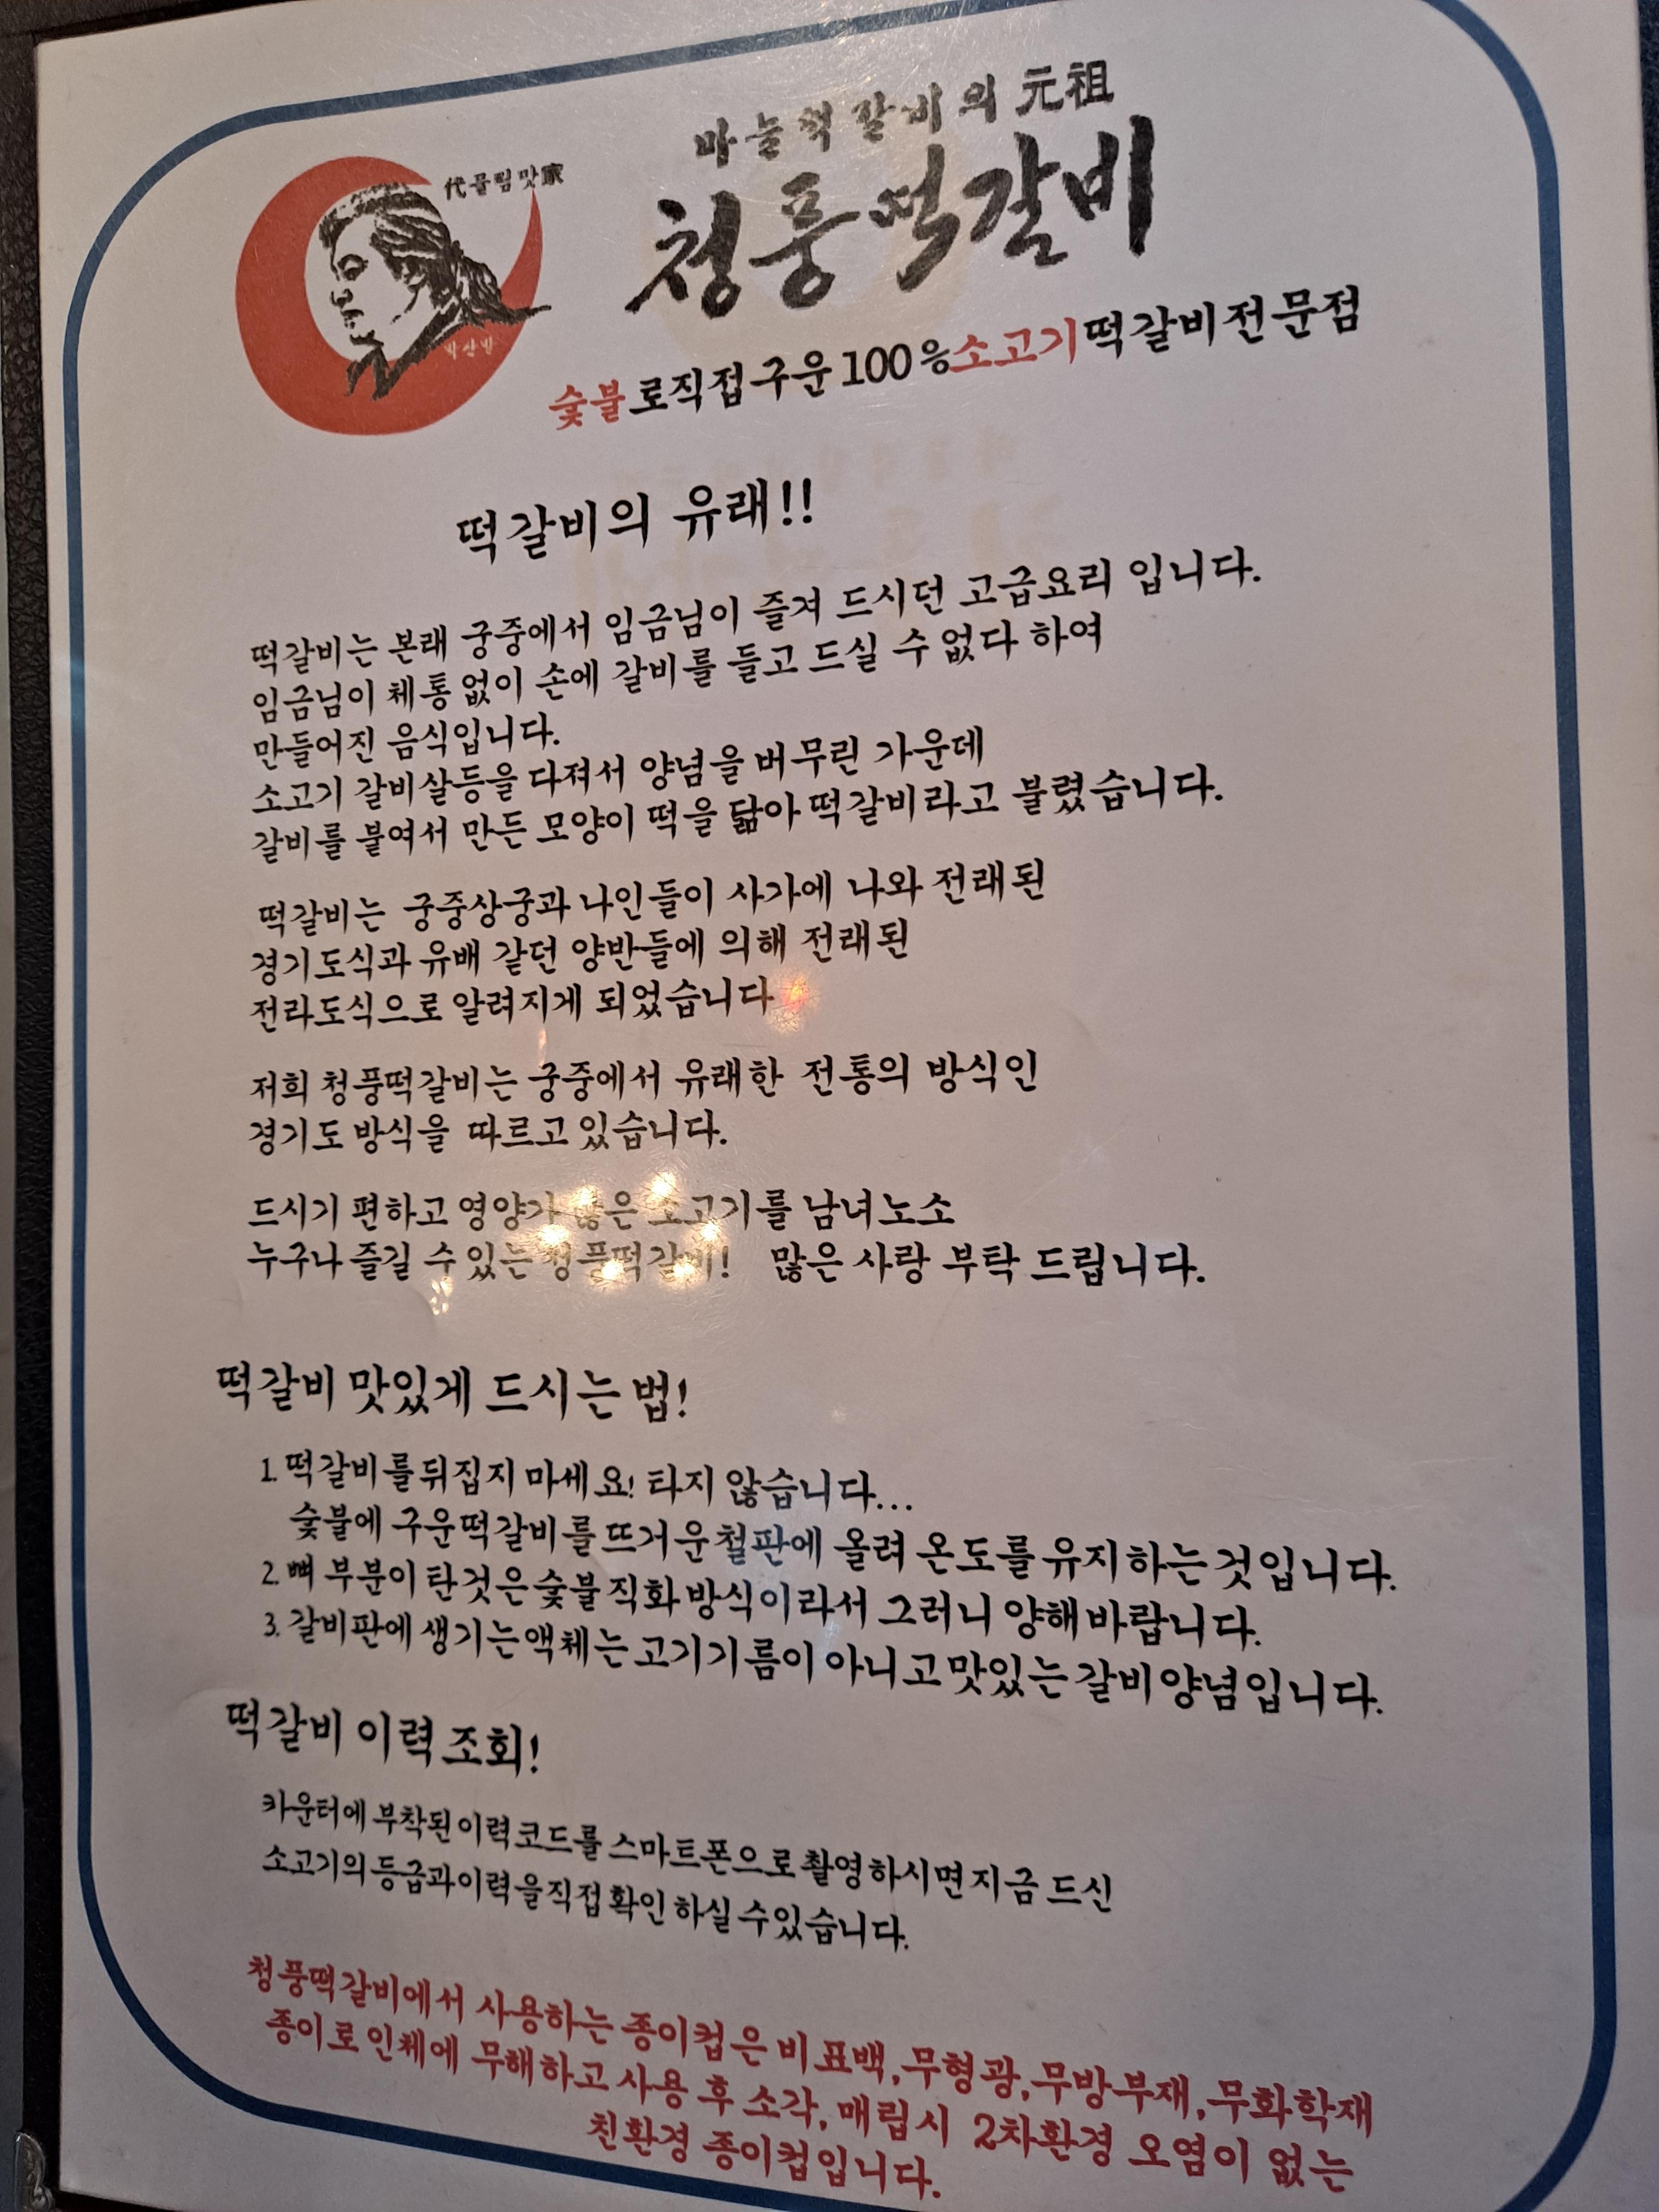 代물림맛家
박상빈
마늘떡갈비의 元祖
청풍떡갈비
숯불로직접구운100%소고기떡갈비전문점
떡갈비의 유래!!
떡갈비는 본래 궁중에서 임금님이 즐겨 드시던 고급요리 입니다.
임금님이 체통없이 손에 갈비를 들고 드실 수 없다 하여
만들어진 음식입니다.
소고기 갈비살등을 다져서 양념을 버무린 가운데
갈비를 붙여서 만든 모양이 떡을 닮아 떡갈비라고 불렸습니다.
떡갈비는 궁중상궁과 나인들이 사가에 나와 전래된
경기도식과 유배 갔던 양반들에 의해 전래된
전라도식으로 알려지게 되었습니다
저희 청풍떡갈비는 궁중에서 유래한 전통의 방식인
경기도 방식을 따르고 있습니다.
드시기 편하고 영양가 많은 소고기를 남녀노소
누구나 즐길 수 있는 청풍떡갈비! 많은 사랑 부탁 드립니다.
떡갈비 맛있게 드시는 법!
1. 떡갈비를 뒤집지 마세요! 타지 않습니다...
숯불에 구운떡갈비를 뜨거운 철판에 올려 온도를 유지하는것입니다.
2. 뼈 부분이 탄것은 숯불 직화 방식이라서 그러니 양해바랍니다.
3. 갈비판에 생기는 액체는 고기기름이 아니고 맛있는 갈비양념입니다.
떡갈비 이력 조회!
카운터에 부착된 이력코드를 스마트폰으로 촬영하시면 지금 드신
소고기의 등급과 이력을 직접 확인하실 수 있습니다.
청풍떡갈비에서 사용하는 종이컵은 비표백,무형광,무방부재,무화학재
종이로 인체에 무해하고 사용 후 소각,매립시 2차환경 오염이 없는
친환경 종이컵입니다.